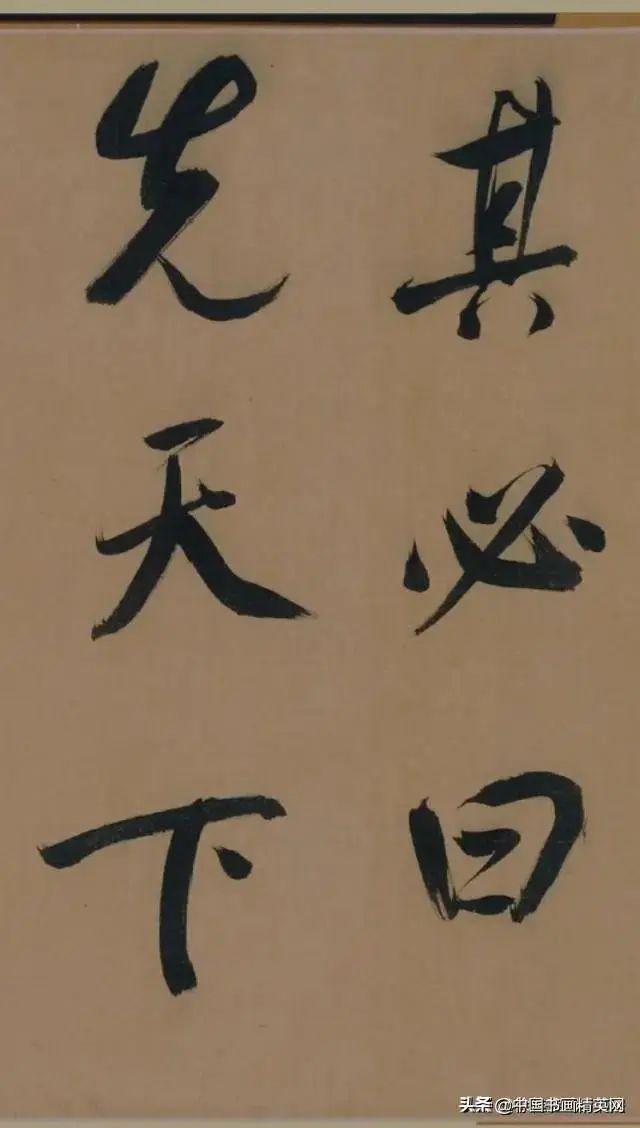 其必曰
先天下
头条 @中国书画精英网